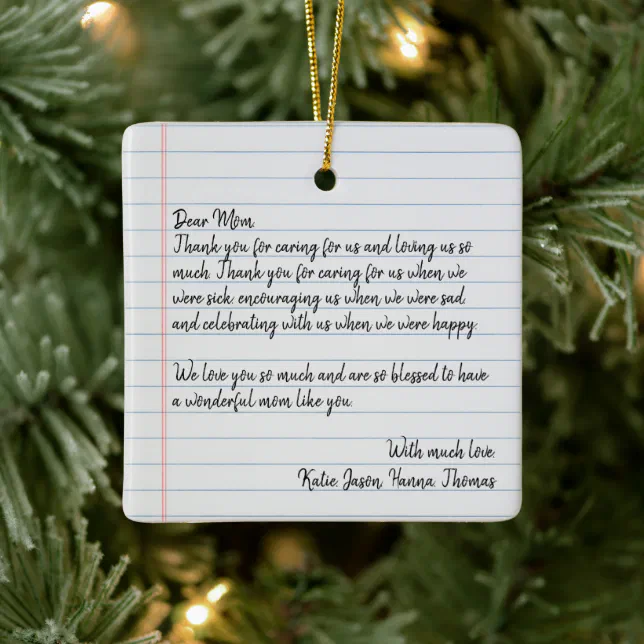 Dear Mom,
Thank you for caring for us and loving us so
much. Thank you for caring for us when we
were sick, encouraging us when we were sad,
and celebrating with us when we were happy.
We love you so much and are so blessed to have
a wonderful mom like you.
With much love,
Katie, Jason, Hanna, Thomas